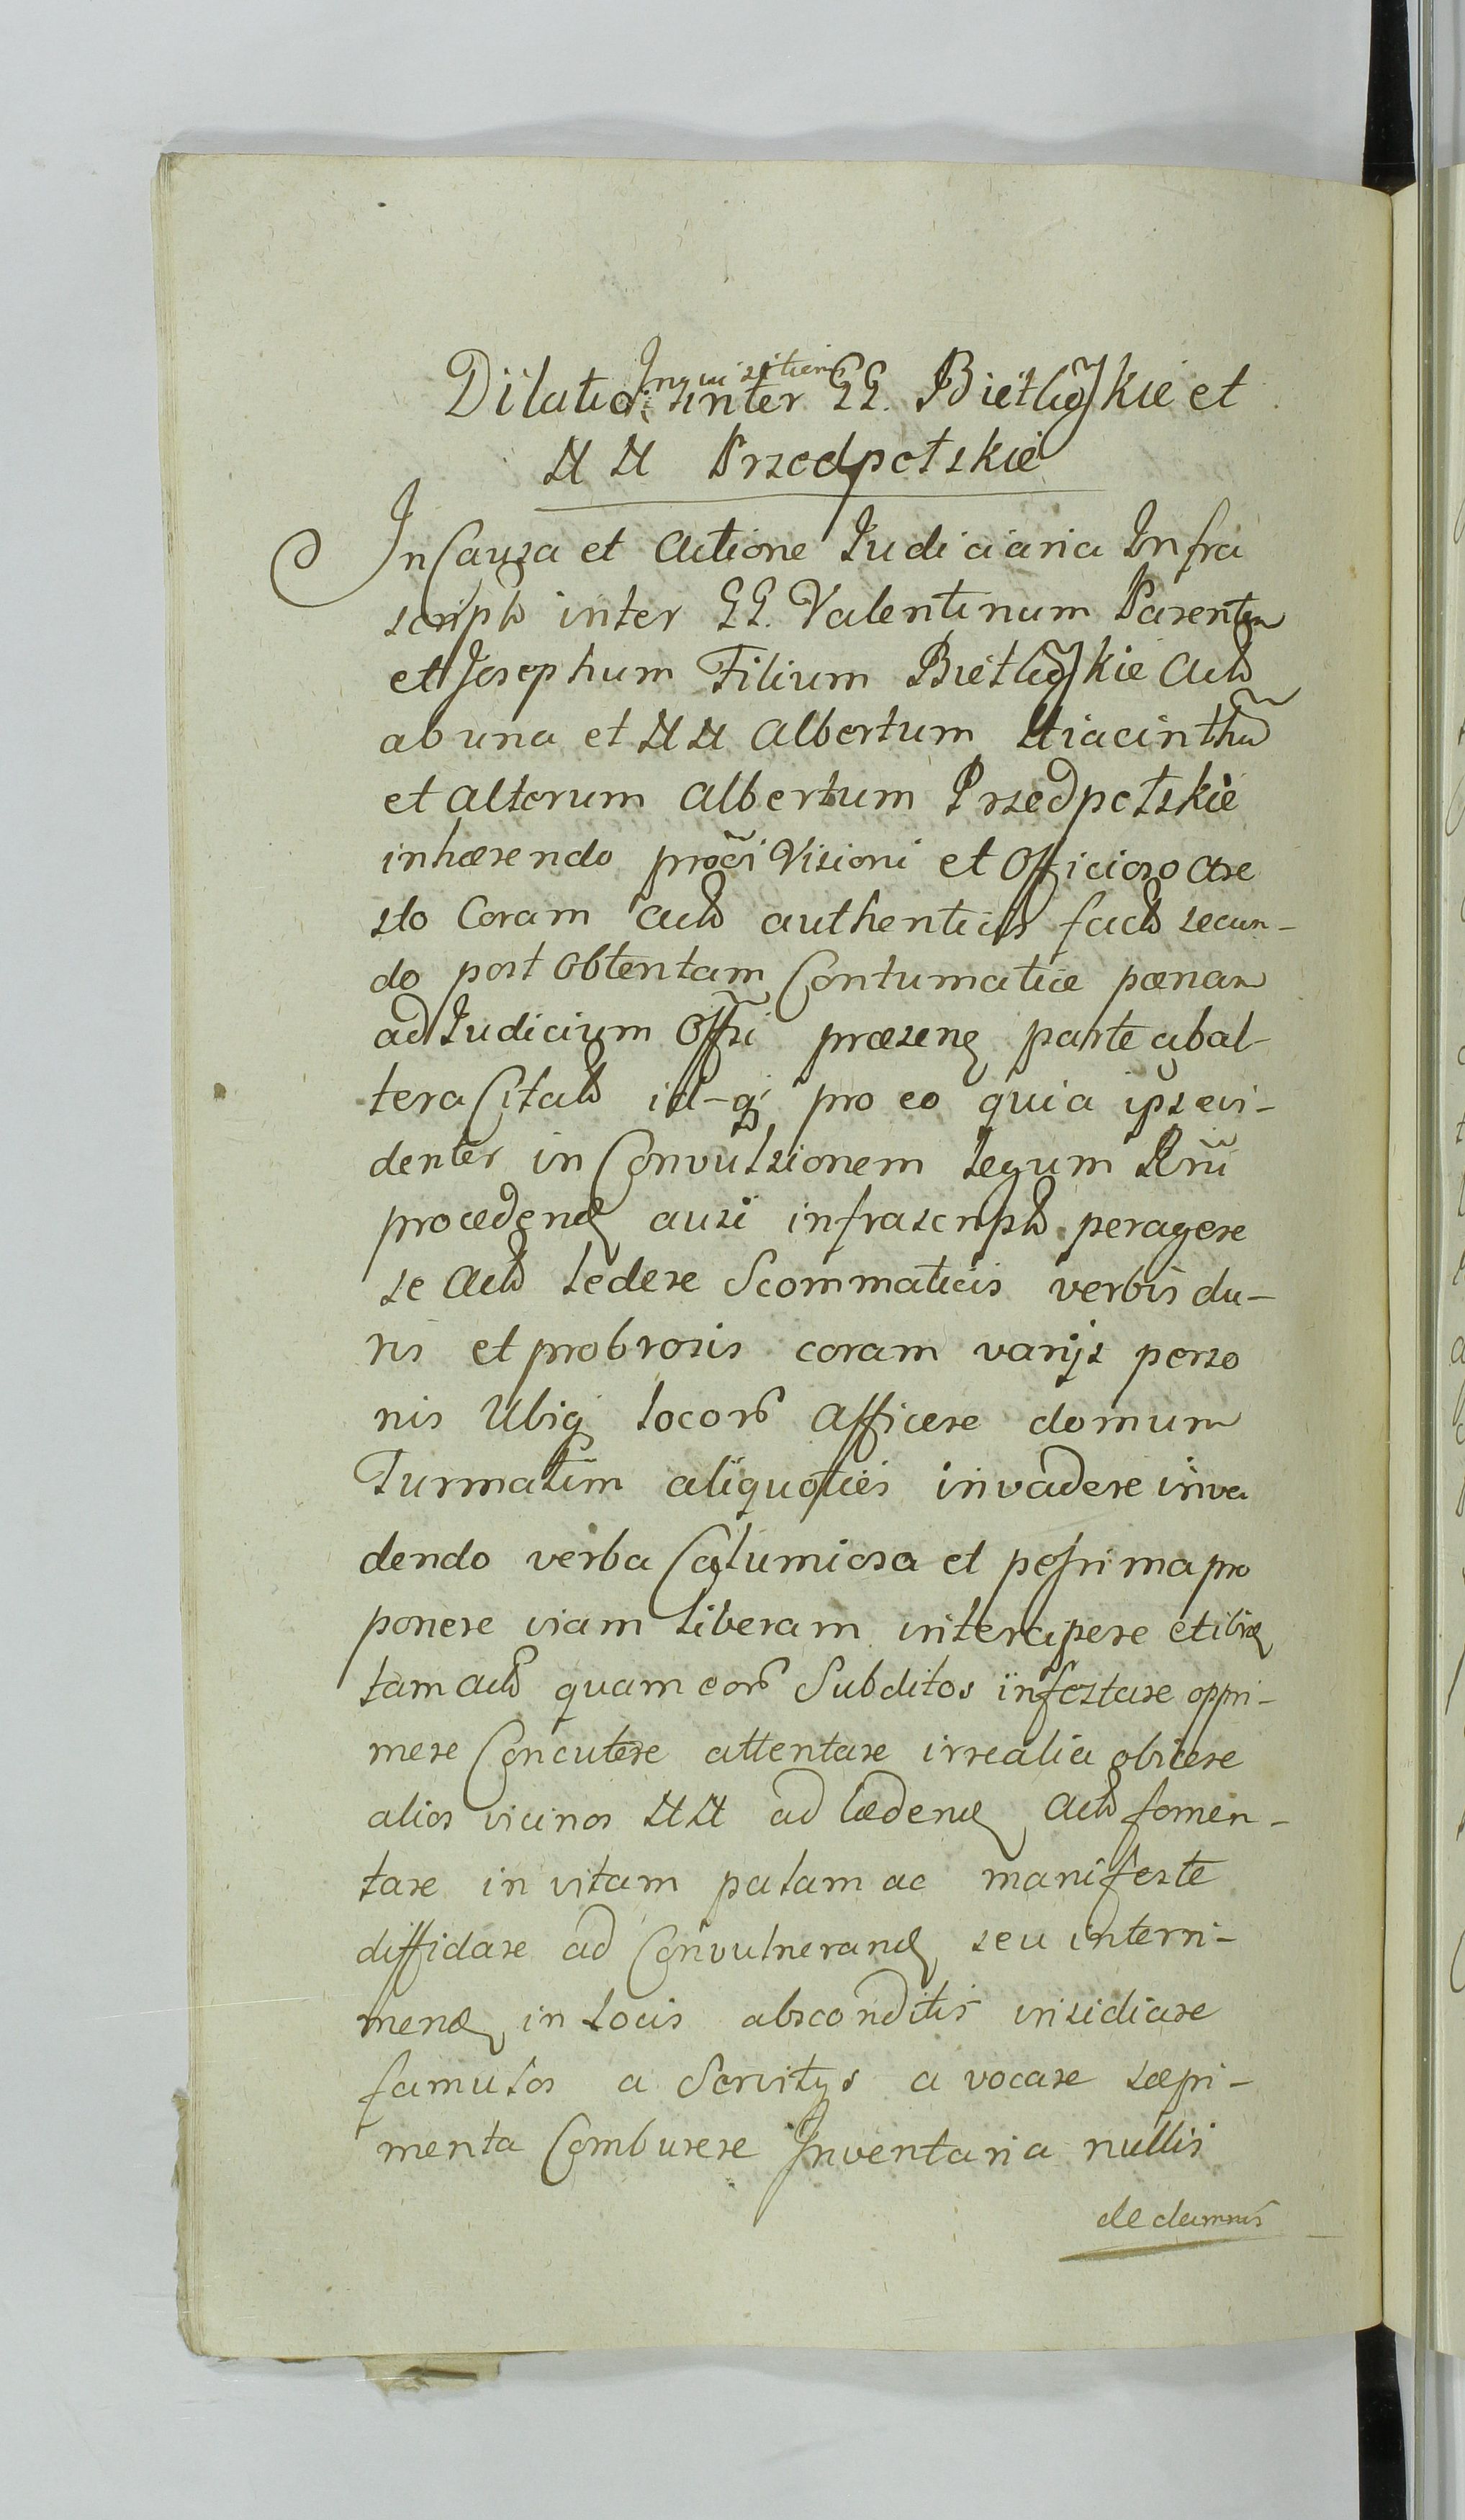 Dilatio Inquisition inter GG. Bietliński e et
NN Przedpełskie
In Causa et Actione Judiciaria Infra
script inter GG. Valentinum Parentem
et Josephum Filium Act
ab una et NN Albertum Hiacinthu
et alterum Albertum Przedpełskie
inhærendo Visioni et Officioso Are
sto Coram act authenticis fact secun-
do post obtentam Contumatiæ pœnam
ad Judicium Offsi præsens parte ab al-
tera Citat id-q pro eo quia ipsi evi-
denter in Convulsionem Legum Rni
procedend ausi infrascript peragere
se Act ledere Scommaticis verbis du-
ris et probrosis coram varijs perso
nis Ubiq locor afficere domum
Turmatim aliquoties invadere inva
dendo verba Calumiosa et pessima pro
ponere viam liberam intercipere et ibiq
tam act quam eor Subditos infestare oppri-
mere Concutere attentare irrealia obicere
alios vicinos NN ad lædend Act fomen-
tare in vitam palam ac manifeste
diffidare ad Convulnerand seu interri-
mend in Locis absconditis insidiare
famulos a Servitys a vocare sæpi-
menta Comburere Inventaria nullis
de damnis